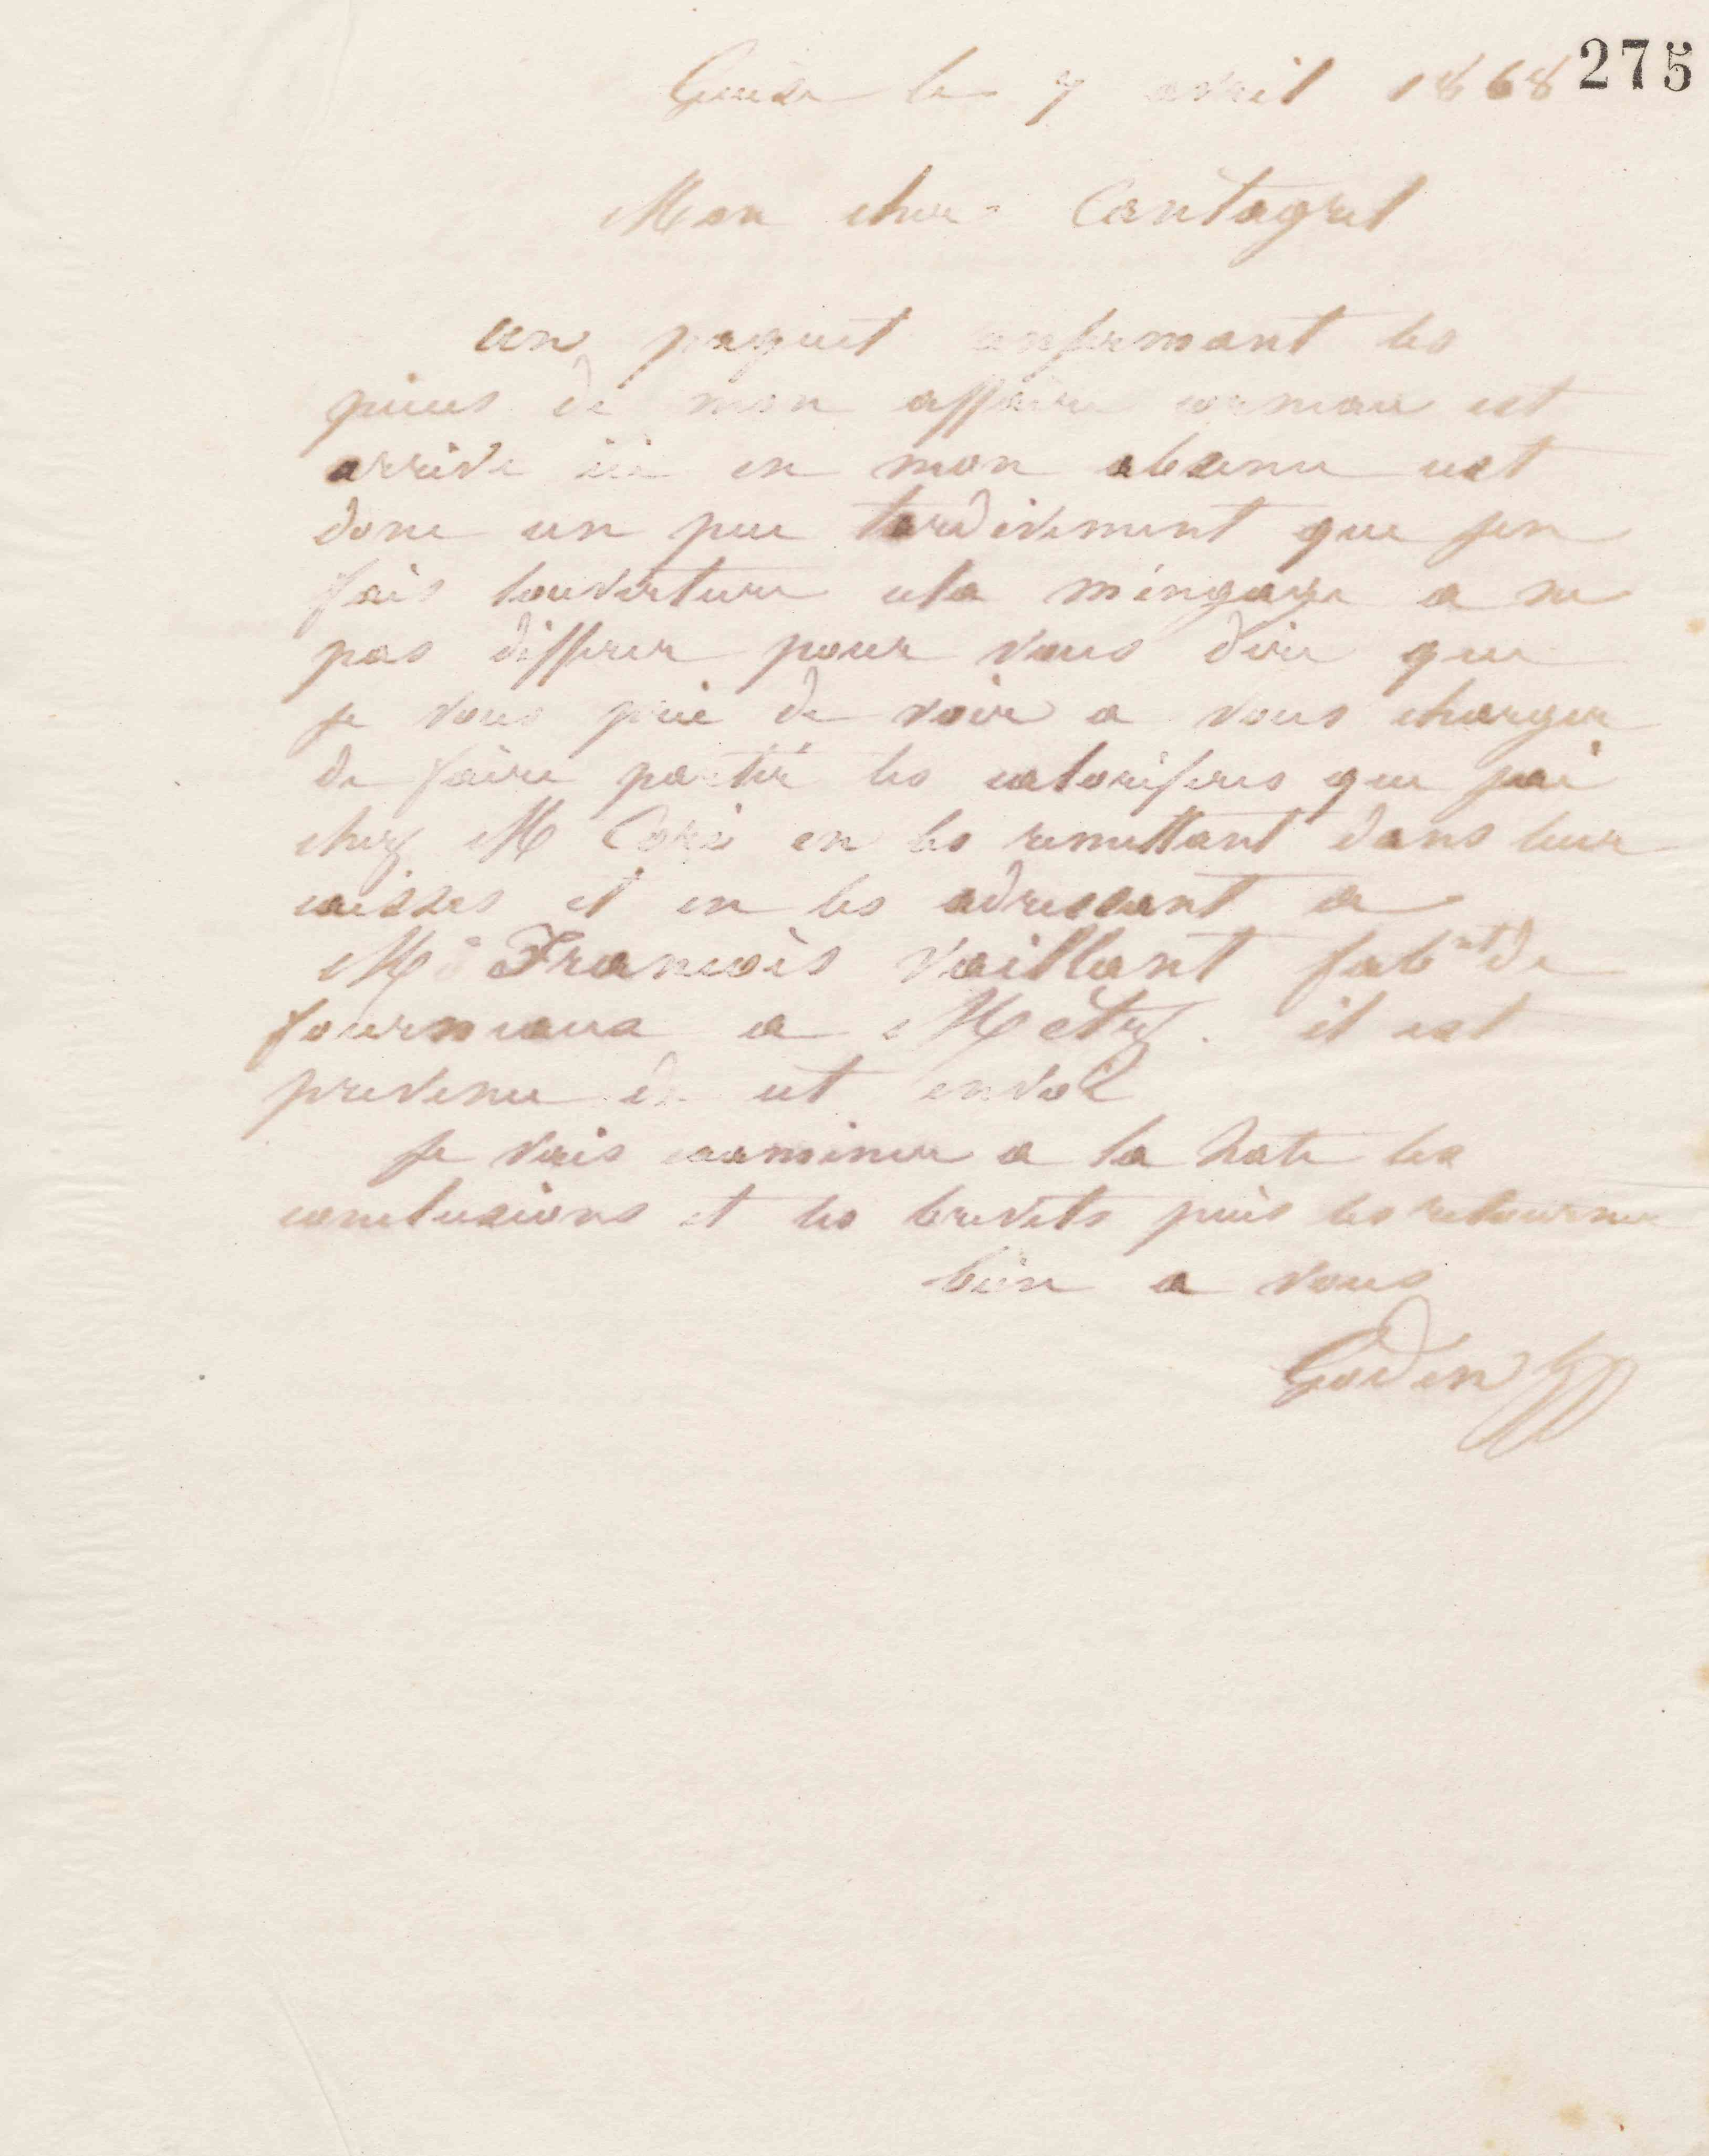 275
Guise le 7 avril 1868
Mon cher Cantagrel
un paquet enfermant les
pieces de mon affaire corneau est
arrivé ici en mon absence cest
donc un peu tardivement que jen
fais louverture cela mengage a ne
pas differer pour vous dire que
je vous prie de voir a vous charger
de faire partir les caloriferes que jai
chez M en les remettant dans leur
caisses et en les adressant a
M François vaillant fabnt de
fourneaux a Metz. il est
prevenu de cet envoi
je vais examiner a la hate les
conclusions et les brevets puis les retourner
bien a vous
Godin